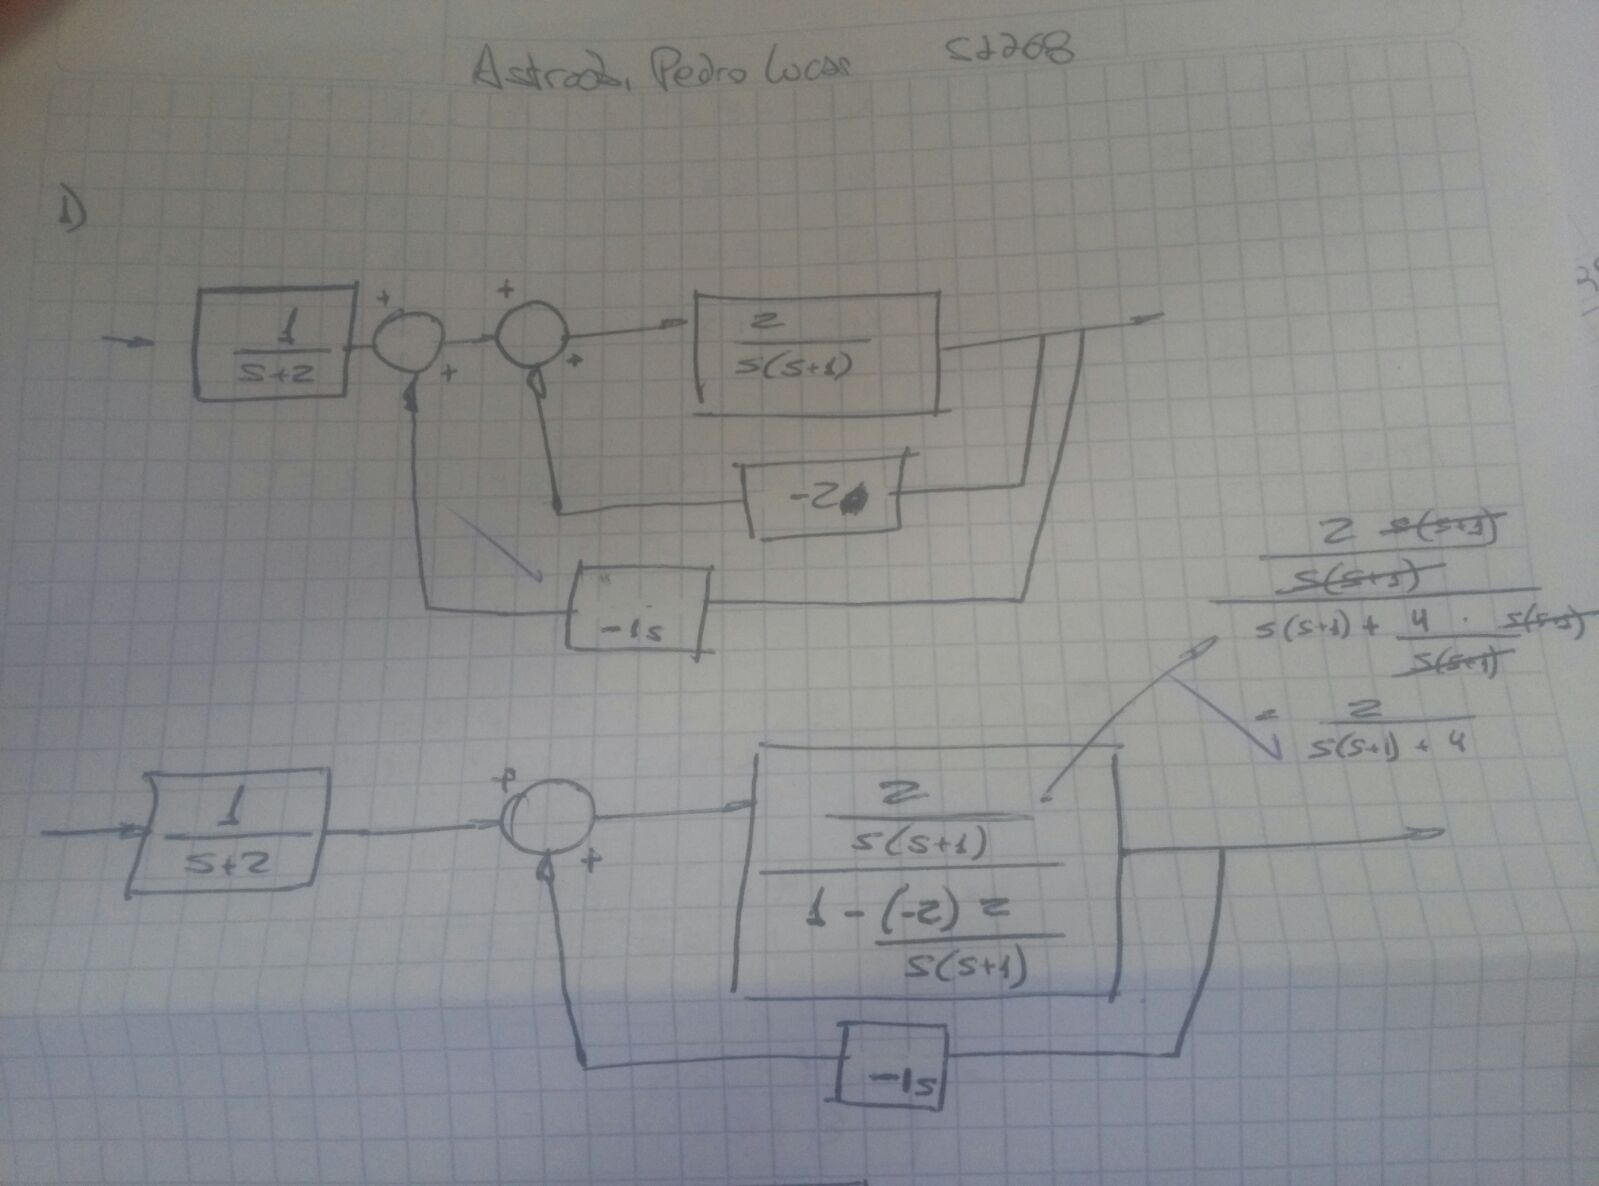 Pedro Lucas 52268
1)
1
s+2
+ +
+ +
2
s(s+1)
-2
-1s
2 s(s+1)
s(s+1)
s(s+1) + 4 . s(s+1)
s(s+1)
= 2
s(s+1) + 4
1
s+2
+
+
2
s(s+1)
1 - (-2) 2
s(s+1)
-1s